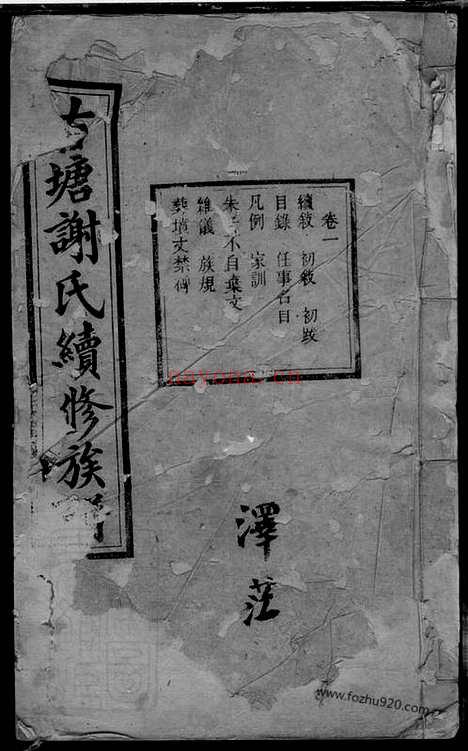 塘謝氏續修族
卷一
續敘 初敘 初跋
目錄 任事名目
凡例 家訓
朱子不自棄文
雜儀 族規
葬墳丈禁碑
澤茫
nayona.cn
www.fozhu920.com